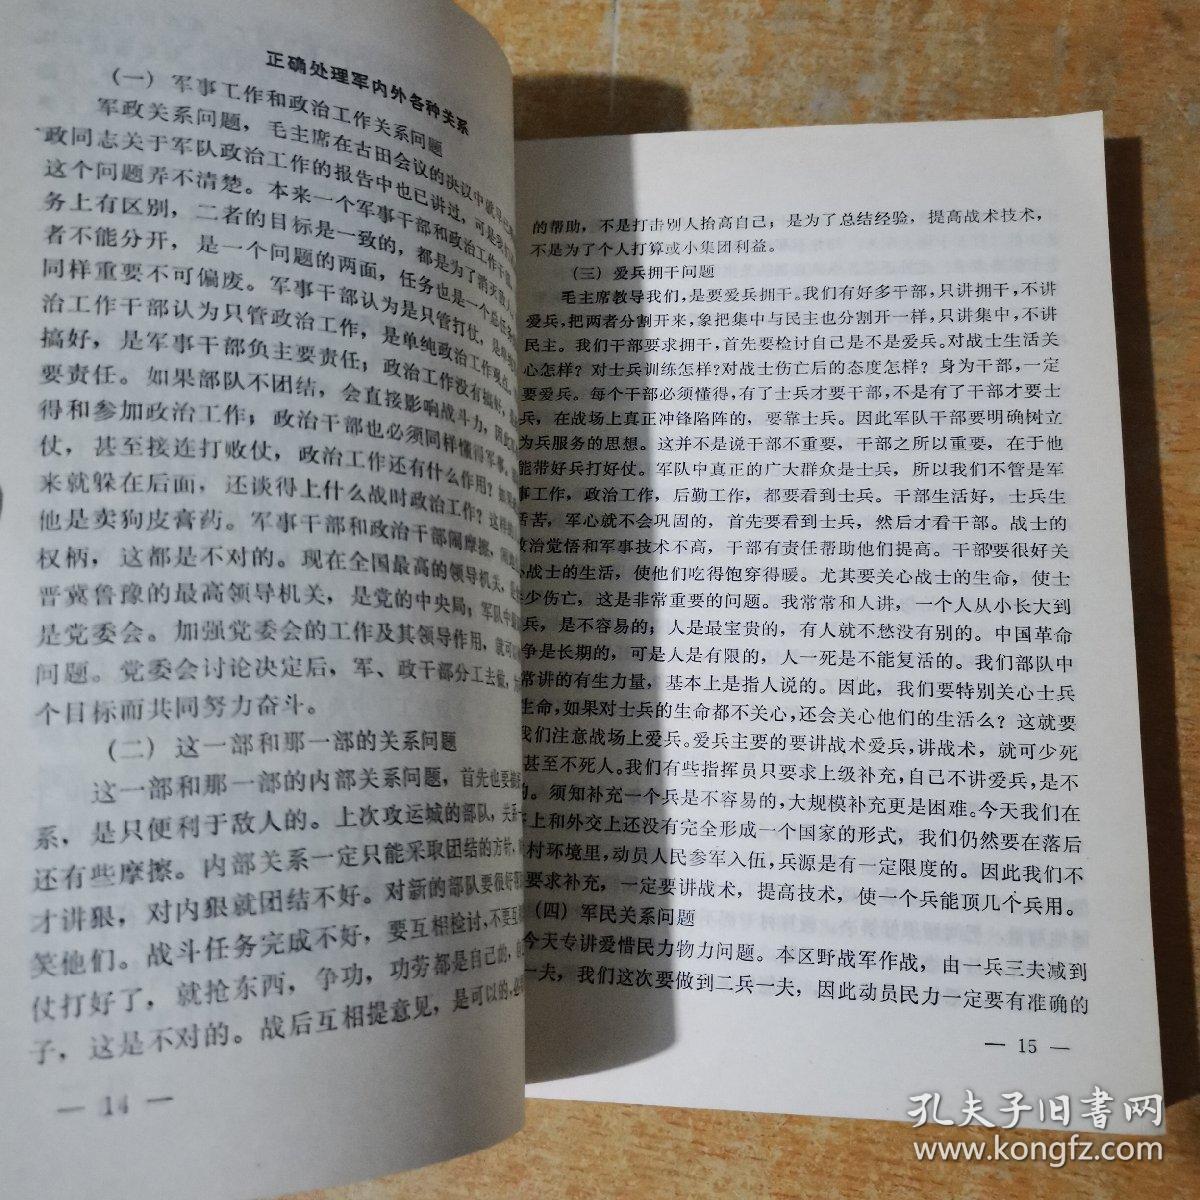 正确处理军内外各种关系
(一) 军事工作和政治工作关系问题
军政关系问题，毛主席在古田会议的决议中就
政同志关于军队政治工作的报告中也已讲过，可是
这个问题弄不清楚。本来一个军事干部和政治工作干部
务上有区别，二者的目标是一致的，都是为了消灭敌人
者不能分开，是一个问题的两面，任务也是一个总任务
同样重要不可偏废。军事干部认为是只管打仗，是单
治工作干部认为只管政治工作，是单纯政治工作观点
搞好，是军事干部负主要责任，政治工作没有搞好，
要责任。如果部队不团结，会直接影响战斗力，因此
得和参加政治工作；政治干部也必须同样懂得军事。
仗，甚至接连打败仗，政治工作还有什么作用？如果
来就躲在后面，还谈得上什么战时政治工作？这样的
他是卖狗皮膏药。军事干部和政治干部闹摩擦，闹
权柄，这都是不对的。现在全国最高的领导机关，是
晋冀鲁豫的最高领导机关，是党的中央局；军队中最
是党委会。加强党委会的工作及其领导作用，就可以
问题。党委会讨论决定后，军、政干部分工去做，为
个目标而共同努力奋斗。
(二) 这一部和那一部的关系问题
这一部和那一部的内部关系问题，首先也要搞
系，是只便利于敌人的。上次攻运城的部队，关系
还有些摩擦。内部关系一定只能采取团结的方针，
才讲狠，对内狠就团结不好。对新的部队要很好
笑他们。战斗任务完成不好，要互相检讨，不要互
仗打好了，就抢东西，争功，功劳都是自己的，
子，这是不对的。战后互相提意见，是可以的，
— 14 —
的帮助，不是打击别人抬高自己；是为了总结经验，提高战术技术，
不是为了个人打算或小集团利益。
(三) 爱兵拥干问题
毛主席教导我们，是要爱兵拥干。我们有好多干部，只讲拥干，不讲
爱兵，把两者分割开来，象把集中与民主也分割开一样，只讲集中，不讲
民主。我们干部要求拥干，首先要检讨自己是不是爱兵。对战士生活关
心怎样？对士兵训练怎样？对战士伤亡后的态度怎样？身为干部，一定
要爱兵。每个干部必须懂得，有了士兵才要干部，不是有了干部才要士
兵，在战场上真正冲锋陷阵的，要靠士兵。因此军队干部要明确树立
为兵服务的思想。这并不是说干部不重要，干部之所以重要，在于他
能带好兵打好仗。军队中真正的广大群众是士兵，所以我们不管是军
事工作，政治工作，后勤工作，都要看到士兵。干部生活好，士兵生
活苦，军心就不会巩固的，首先要看到士兵，然后才看干部。战士的
政治觉悟和军事技术不高，干部有责任帮助他们提高。干部要很好关
心战士的生活，使他们吃得饱穿得暖。尤其要关心战士的生命，使士
兵少伤亡，这是非常重要的问题。我常常和人讲，一个人从小长大到
当兵，是不容易的；人是最宝贵的，有人就不愁没有别的。中国革命
战争是长期的，可是人是有限的，人一死是不能复活的。我们部队中
常讲的有生力量，基本上是指人说的。因此，我们要特别关心士兵
生命，如果对士兵的生命都不关心，还会关心他们的生活么？这就要
我们注意战场上爱兵。爱兵主要的要讲战术爱兵，讲战术，就可少死
甚至不死人。我们有些指挥员只要求上级补充，自己不讲爱兵，是不
的。须知补充一个兵是不容易的，大规模补充更是困难。今天我们在
上和外交上还没有完全形成一个国家的形式，我们仍然要在落后
村环境里，动员人民参军入伍，兵源是有一定限度的。因此我们不
要求补充，一定要讲战术，提高技术，使一个兵能顶几个兵用。
(四) 军民关系问题
今天专讲爱惜民力物力问题。本区野战军作战，由一兵三夫减到
一夫，我们这次要做到二兵一夫，因此动员民力一定要有准确的
— 15 —
孔夫子旧书网
www.kongfz.com